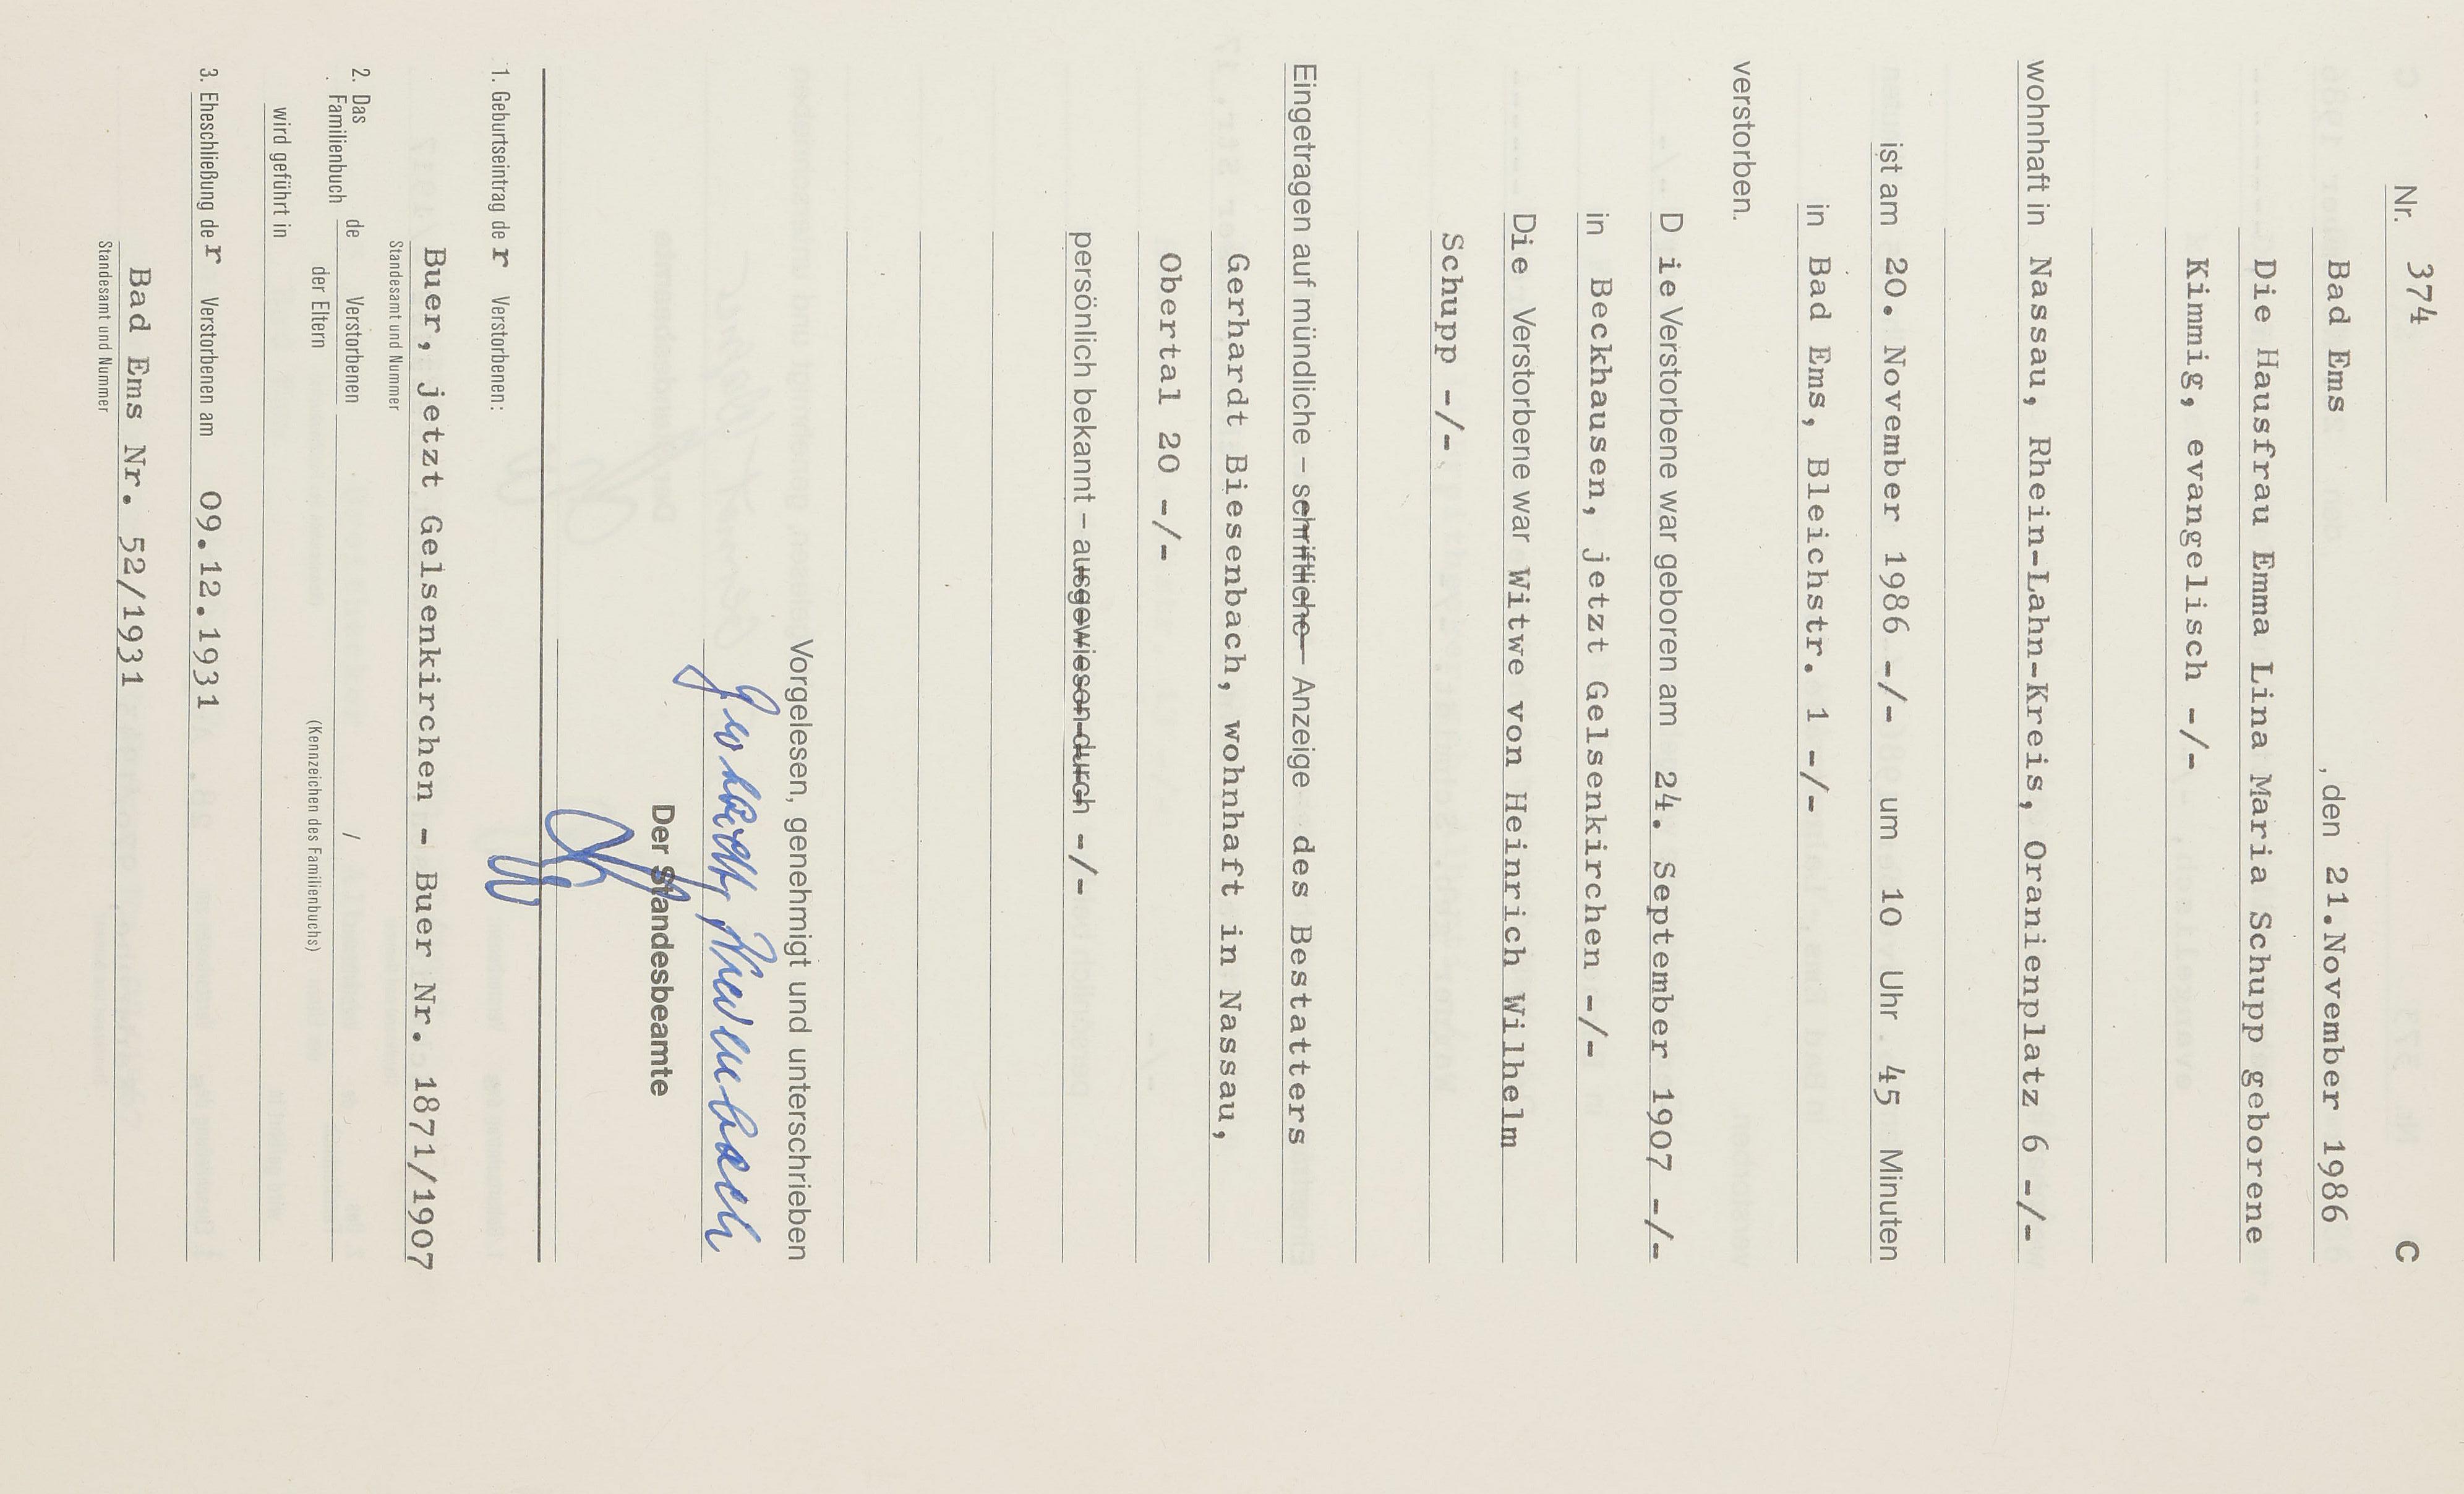 Nr. 374 C
Bad Ems , den 21.November 1986
Die Hausfrau Emma Lina Maria Schupp geborene
Kimmig, evangelisch -/-
wohnhaft in Nassau, Rhein-Lahn-Kreis, Oranienplatz 6 -/-
ist am 20. November 1986 -/- um 10 Uhr 45 Minuten
in Bad Ems, Bleichstr. 1 -/-
verstorben.
D ie Verstorbene war geboren am 24. September 1907 -/-
in Beckhausen, jetzt Gelsenkirchen -/-
Die Verstorbene war Witwe von Heinrich Wilhelm
Schupp -/-
Eingetragen auf mündliche – schriftliche – Anzeige des Bestatters
Gerhardt Biesenbach, wohnhaft in Nassau,
Obertal 20 -/-
persönlich bekannt – ausgewiesen durch -/-
Vorgelesen, genehmigt und unterschrieben
Gerhardt Biesenbach
Der Standesbeamte
1. Geburtseintrag de r Verstorbenen:
Buer, jetzt Gelsenkirchen - Buer Nr. 1871/1907
Standesamt und Nummer
2. Das Familienbuch de Verstorbenen /
der Eltern (Kennzeichen des Familienbuchs)
wird geführt in
3. Eheschließung de r Verstorbenen am 09.12.1931
Bad Ems Nr. 52/1931
Standesamt und Nummer